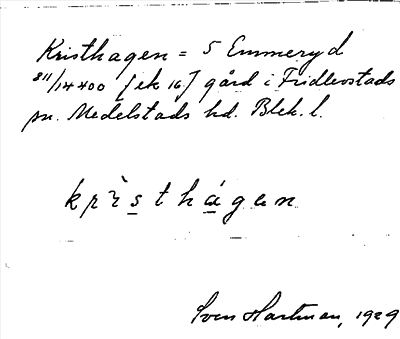 Kristhagen = 5 Emmeryd
811/14400 [ek 16] gård i Fridlevstads
sn. Medelstads hd. Blek. l.
krìsthágen
Sven Hartman, 1929